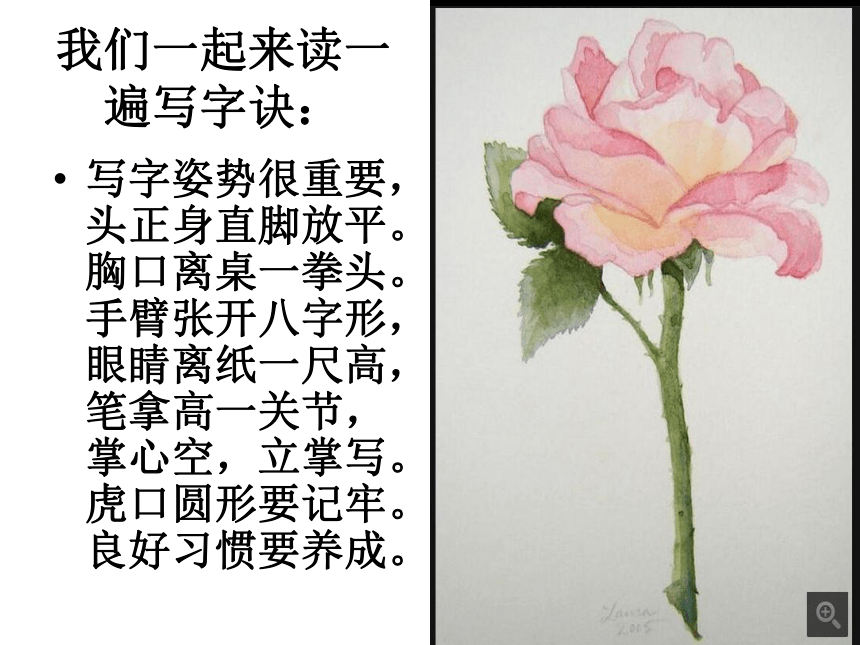 我们一起来读一
遍写字诀：
• 写字姿势很重要，
头正身直脚放平。
胸口离桌一拳头。
手臂张开八字形，
眼睛离纸一尺高，
笔拿高一关节，
掌心空，立掌写。
虎口圆形要记牢。
良好习惯要养成。
Laura
2005